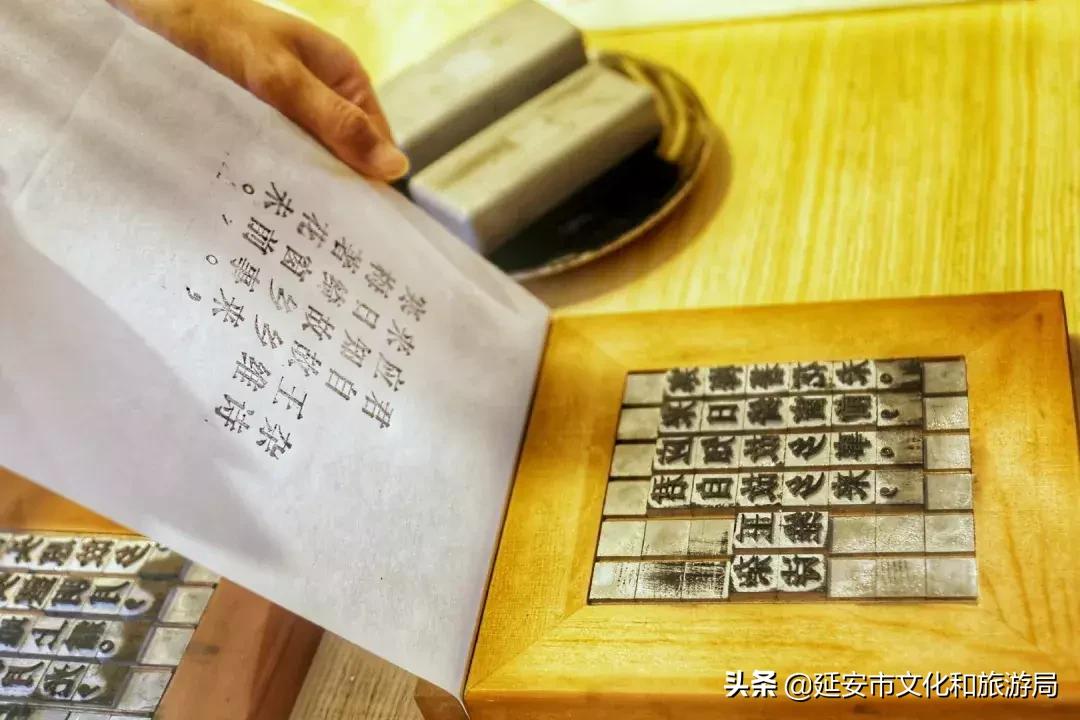 杂诗
王维
君自故乡来，
应知故乡事。
来日绮窗前，
寒梅著花未。
头条 @延安市文化和旅游局